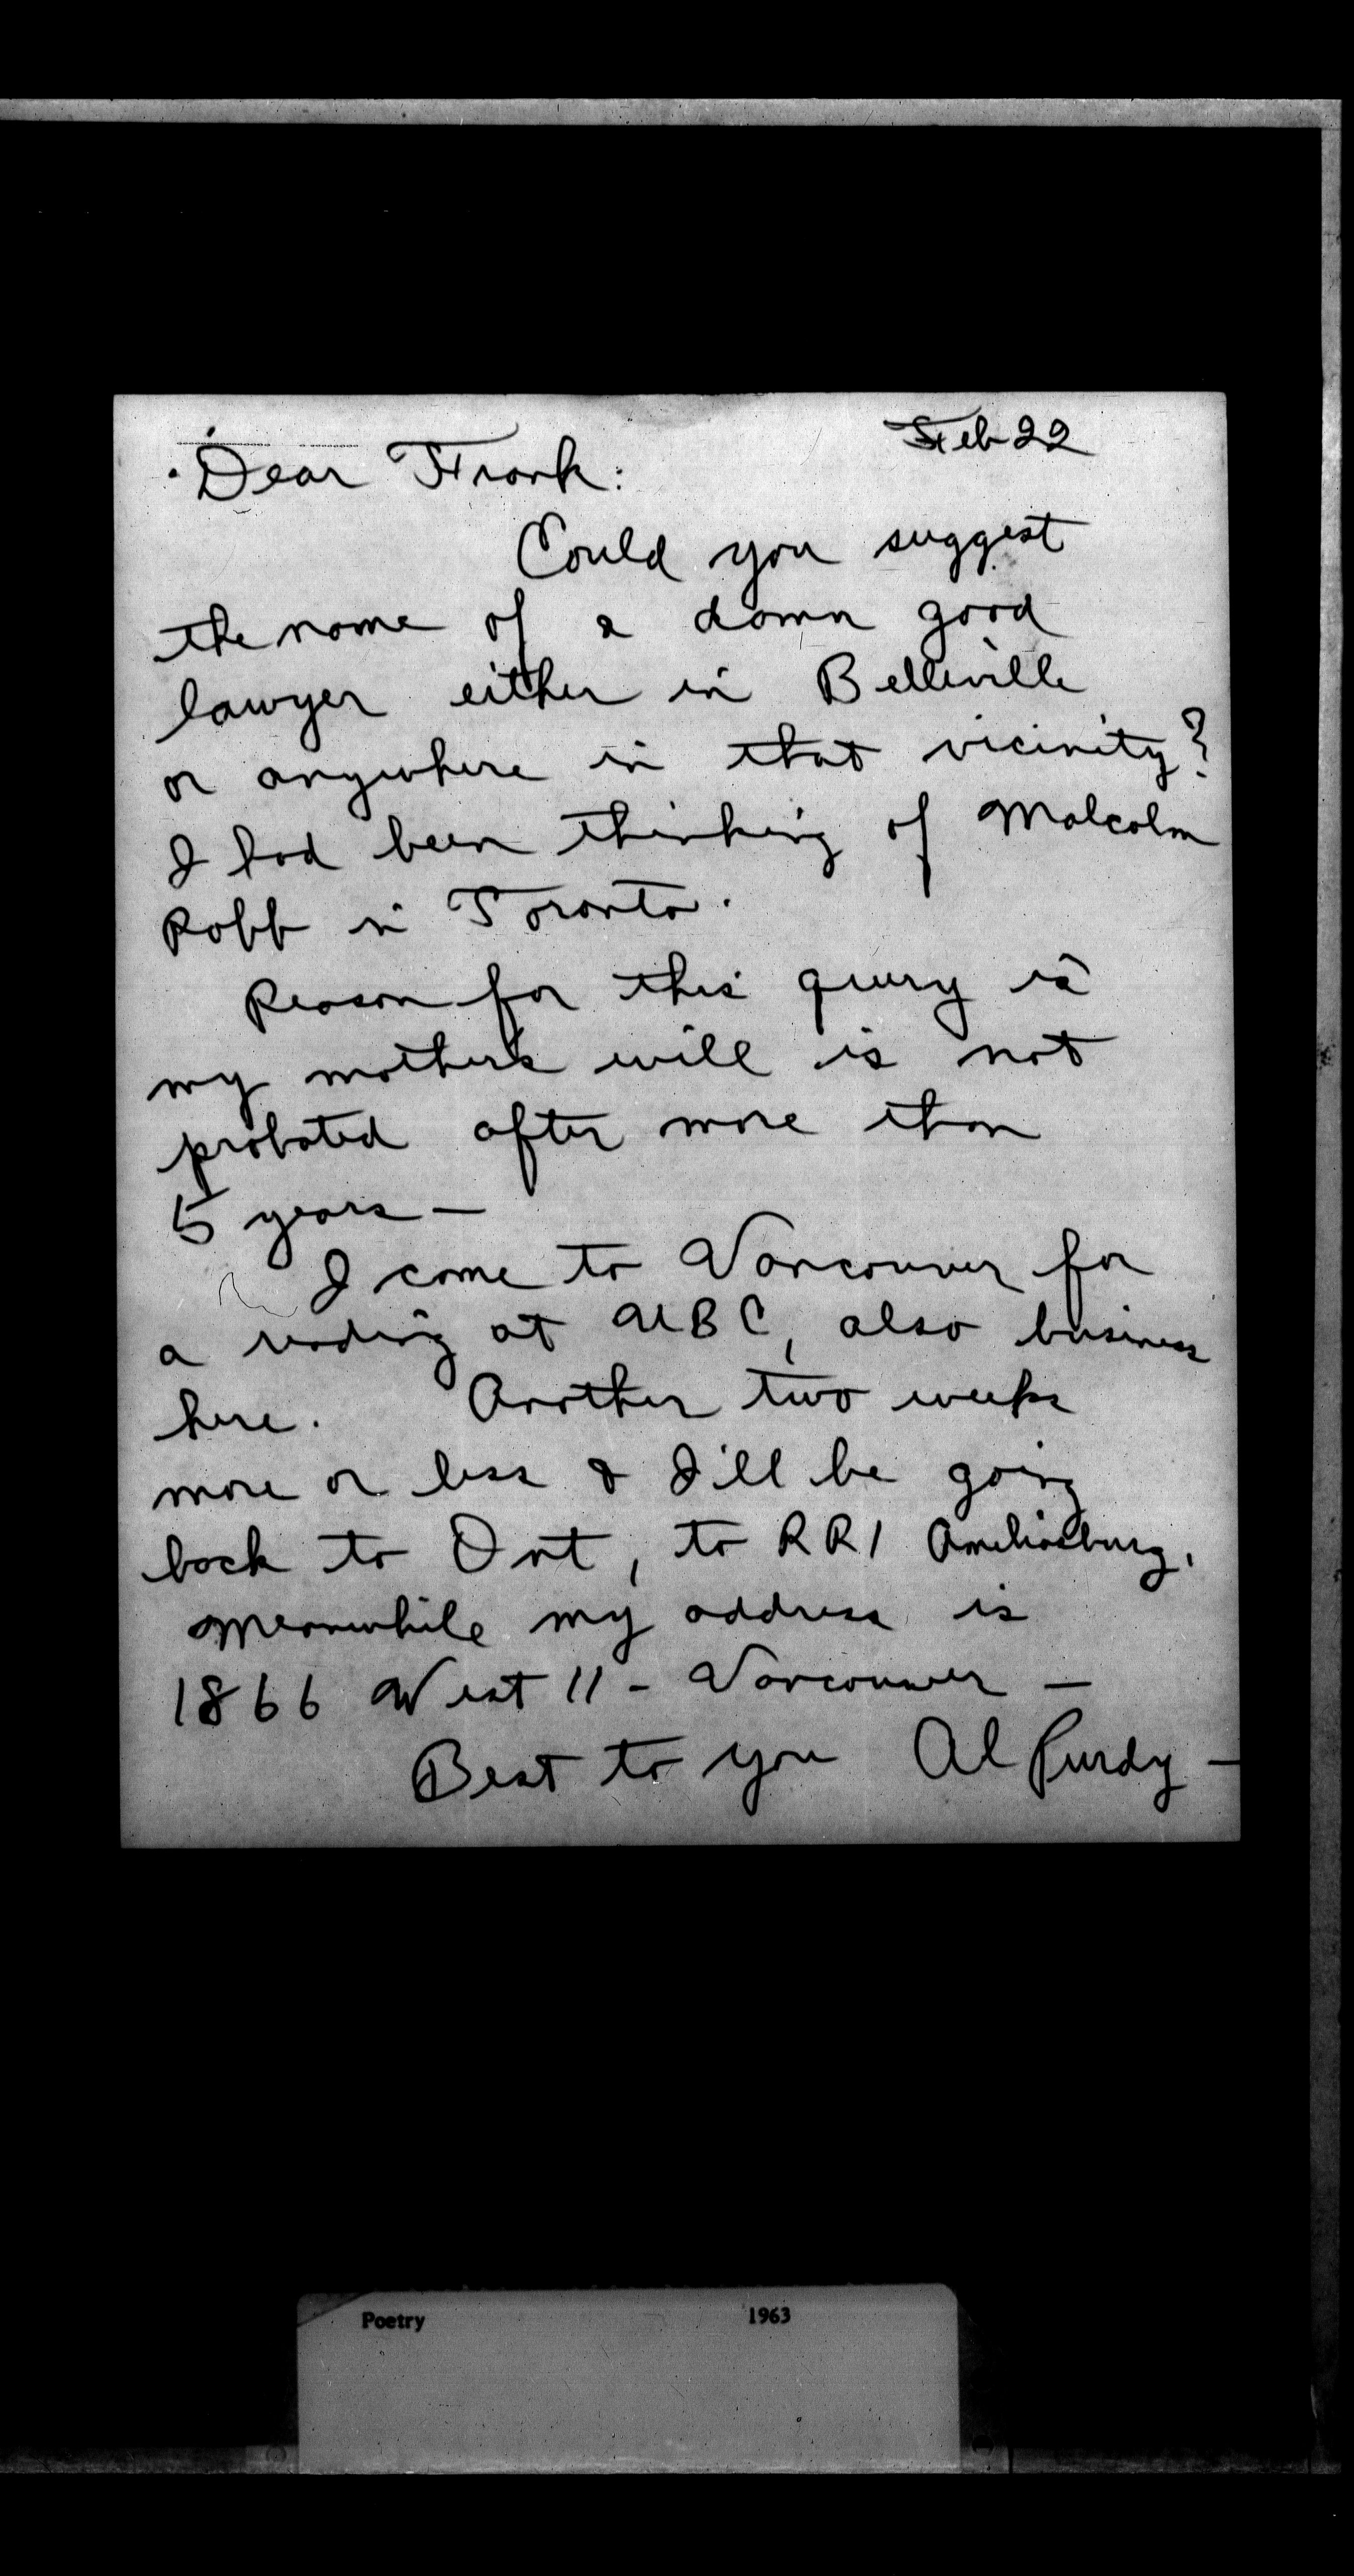 Feb 22
Dear Frank:
Could you suggest
the name of a damn good
lawyer either in Belleville
or anywhere in that vicinity?
I had been thinking of Malcolm
Robb in Toronto.
Reason for this query is
my mother's will is not
probated after more than
5 years —
I came to Vancouver for
a reading at UBC, also business
here. Another two weeks
more or less & I'll be going
back to Ont, to RR1 Ameliasburg.
Meanwhile my address is
1866 West 11 - Vancouver —
Best to you Al Purdy —
Poetry 1963